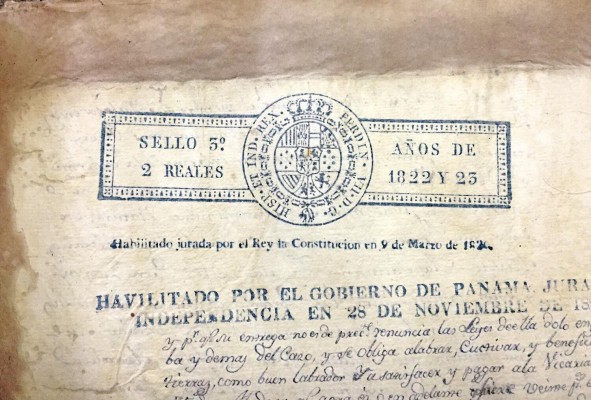 SELLO 3º
2 REALES
HISP. ET IND. REX. FERDIN. VII. D. G.
AÑOS DE
1822 Y 23
Habilitado jurada por el Rey la Constitucion en 9 de Marzo de
HAVILITADO POR EL GOBIERNO DE PANAMA JURA
INDEPENDENCIA EN 28 DE NOVIEMBRE DE 18
su entrega no es de renuncia las Leyes de ella dolo
ba y demas del Caso, y se obliga alabrar, Cultivar, y benefic
tierras, como buen labrador y a satisfacer y pagar a la Vicaria
en adelante